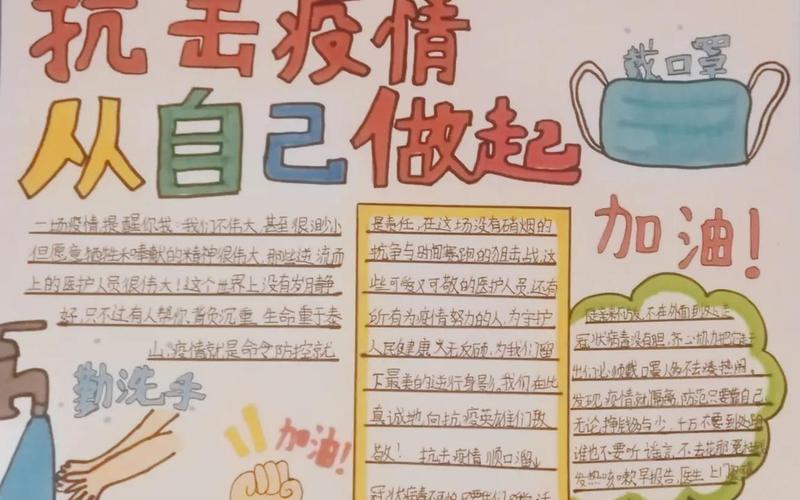 抗击疫情
从自己做起
戴口罩
加油!
一场疫情,提醒你我:我们不伟大,甚至很渺小
但愿意牺牲和奉献的精神很伟大,那些逆流而
上的医护人员很伟大!这个世界上没有岁月静
好,只不过有人帮你背负沉重.生命重于泰
山,疫情就是命令,防控就
勤洗手
加油!
是责任,在这场没有硝烟的
抗争与时间赛跑的狙击战,这
些可爱又可敬的医护人员还有
所有为疫情努力的人,为守护
人民健康义无反顾,为我们留
下最美的逆行身影,我们在此
真诚地,向抗疫英雄们致
敬! 抗击疫情顺口溜
冠状病毒
不在外面到处走
冠状病毒没有胆,齐心协力把它
出们必须戴口罩人多不去凑热闹.
发现疫情就腰痛,防范只要靠自己
无论挣钱多与少,千万不要到处跑
谁也不要听谣言,不去花那
发热咳嗽早报告,医生上门